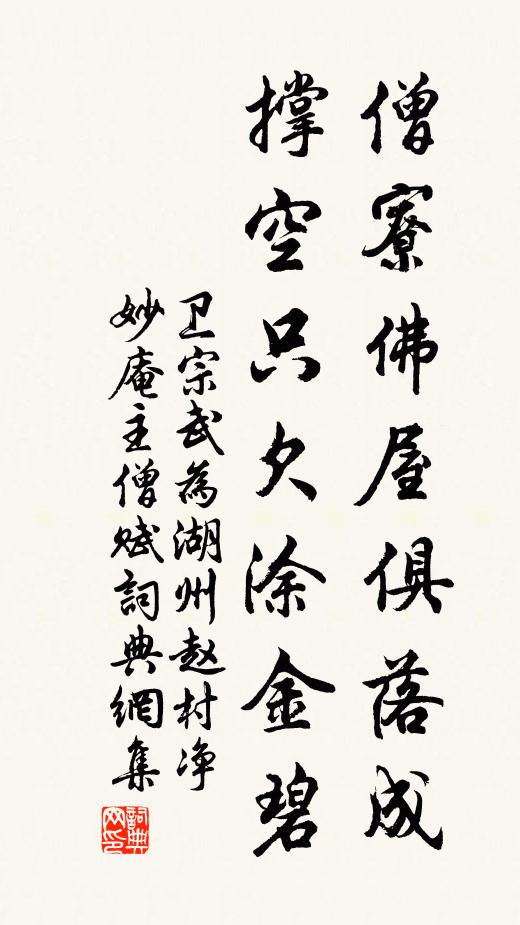 僧寮佛屋俱落成
撑空只欠涂金碧
卫宗武為湖州赵村净
妙庵主僧赋詞典網集
詞典
网印